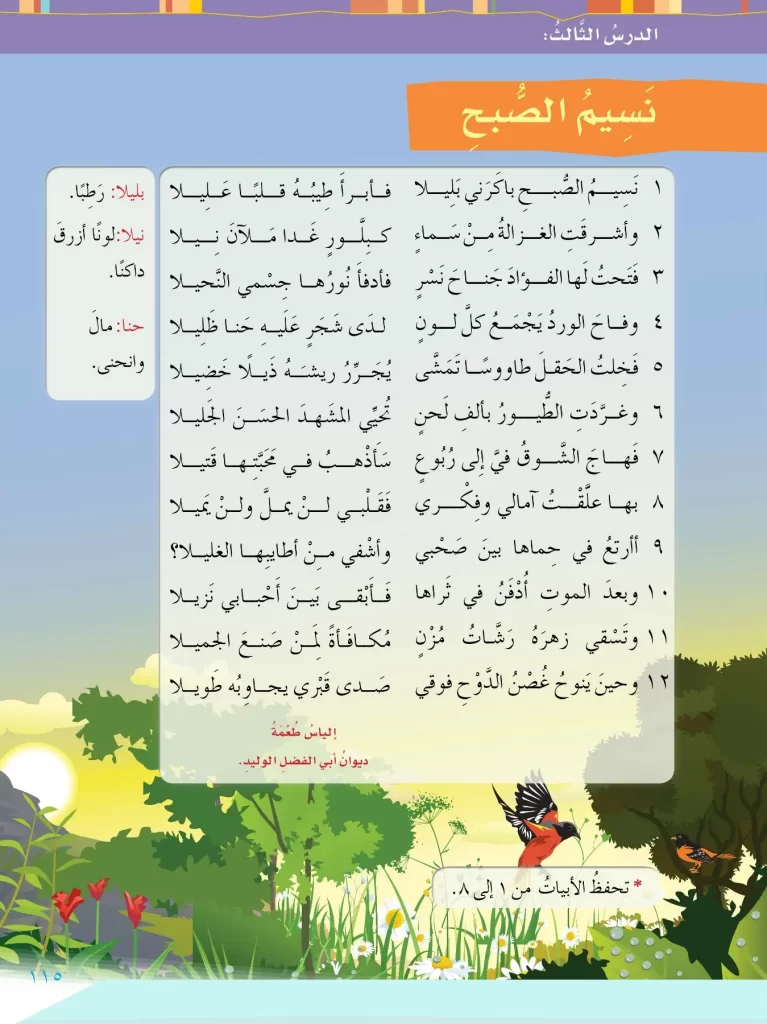 الدرسُ الثَّالثُ:
نَسِيمُ الصُّبحِ
١ نَسِيمُ الصُّبحِ باكَرَني بَلِيلا فأبرأَ طِيبُهُ قلبًا عَلِيلا
٢ وأشرقَتِ الغزالةُ مِنْ سَماءٍ كبِلَّورٍ غَدا مَلآنَ نِيلا
٣ فَتَحتُ لَها الفؤادَ جَناحَ نَسْرٍ فأدفأَ نُورُها جِسْمي النَّحيلا
٤ وفاحَ الوردُ يَجْمَعُ كلَّ لونٍ لدَى شَجَرٍ عَلَيهِ حَنا ظَلِيلا
٥ فَخِلتُ الحَقلَ طاووسًا تَمَشَّى يُجَرِّرُ ريشَهُ ذَيلًا خَضيلا
٦ وغرَّدَتِ الطُّيورُ بألفِ لَحنٍ تُحَيِّي المشهدَ الحسَنَ الجَليلا
٧ فَهاجَ الشَّوقُ فيَّ إلى رُبُوعٍ سَأذْهبُ في مَحَبَّتِها قَتيلا
٨ بها علَّقْتُ آمالي وفِكْري فَقَلْبي لنْ يملَّ ولنْ يَميلا
٩ أأرتعُ في حِماها بينَ صَحْبي وأشْفي مِنْ أطايبِها الغليلا؟
١٠ وبعدَ الموتِ أُدْفَنُ في ثَراها فَأَبْقى بَيْنَ أَحْبابي نَزيلا
١١ وتَسْقي زهرَهُ رَشَّاتُ مُزْنٍ مُكافَأةً لِمَنْ صَنعَ الجميلا
١٢ وحينَ يَنوحُ غُصْنُ الدَّوْحِ فوقي صَدى قَبْري يجاوِبُه طَويلا
إلياسُ طُعْمَةُ
ديوانُ أبي الفضلِ الوليدِ.
بليلا: رَطِبًا.
نيلا: لونًا أزرقَ
داكنًا.
حنا: مالَ
وانحنى.
* تحفظُ الأبياتُ من ١ إلى ٨.
١١٥